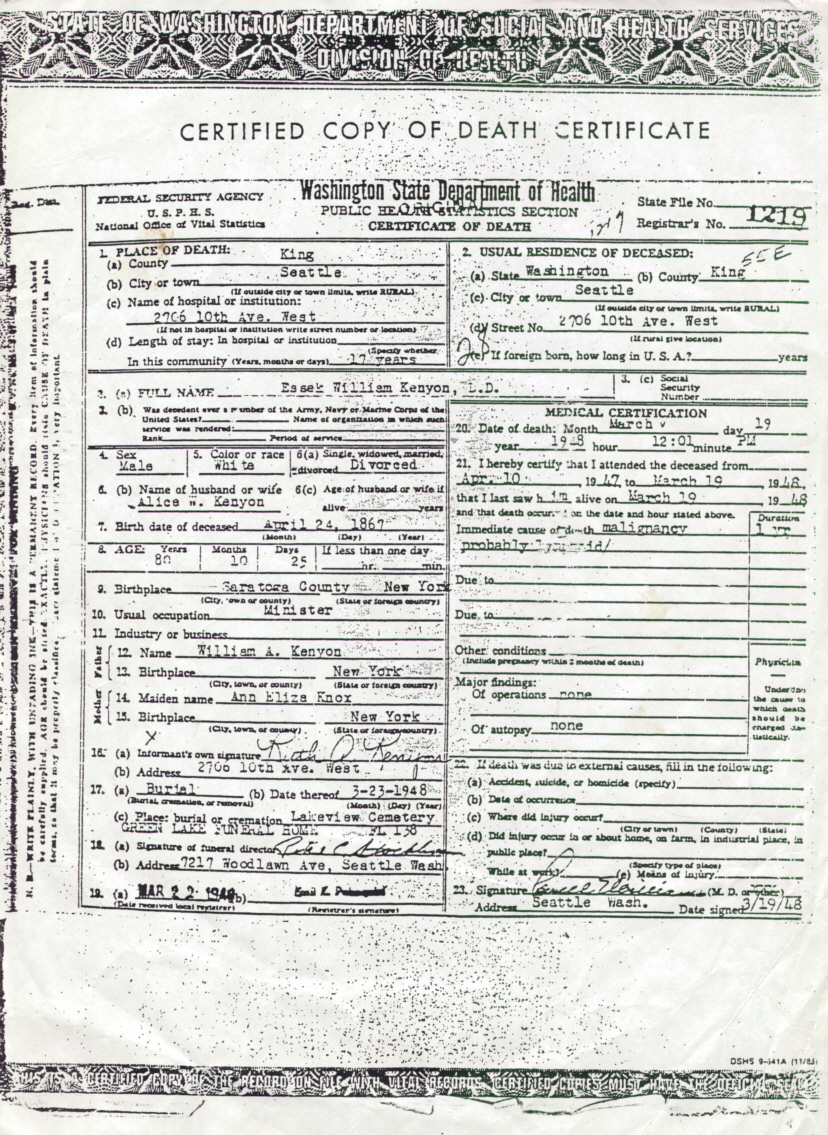 STATE OF WASHINGTON DEPARTMENT OF SOCIAL AND HEALTH SERVICES
DIVISION OF HEALTH
CERTIFIED COPY OF DEATH CERTIFICATE
Reg. Dist.
FEDERAL SECURITY AGENCY
U. S. P. H. S.
National Office of Vital Statistics
Washington State Department of Health
PUBLIC HEALTH STATISTICS SECTION
CERTIFICATE OF DEATH
State File No.
Registrar's No. 1219
1. PLACE OF DEATH:
(a) County King
(b) City or town Seattle
(If outside city or town limits, write RURAL)
(c) Name of hospital or institution:
2706 10th Ave. West
(If not in hospital or institution write street number or location)
(d) Length of stay: In hospital or institution
(Specify whether
In this community (Years, months or days) 17 years
2. USUAL RESIDENCE OF DECEASED:
(a) State Washington (b) County King
(c) City or town Seattle
(If outside city or town limits, write RURAL)
(d) Street No. 2706 10th Ave. West
(If rural give location)
(e) If foreign born, how long in U. S. A.? years
3. (a) FULL NAME Essek William Kenyon, L.D.
3. (c) Social Security Number
3. (b) Was decedent ever a member of the Army, Navy or Marine Corps of the
United States? Name of organization in which such
service was rendered:
Rank Period of service
4. Sex Male
5. Color or race White
6(a) Single, widowed, married, divorced Divorced
6. (b) Name of husband or wife
Alice W. Kenyon
6(c) Age of husband or wife if
alive years
7. Birth date of deceased April 24, 1867
(Month) (Day) (Year)
8. AGE: Years 80 Months 10 Days 25 If less than one day
hr. min.
9. Birthplace Saratoga County New York
(City, town or county) (State or foreign country)
10. Usual occupation Minister
11. Industry or business
Father
12. Name William A. Kenyon
13. Birthplace New York
(City, town, or county) (State or foreign country)
Mother
14. Maiden name Ann Eliza Knox
15. Birthplace New York
(City, town, or county) (State or foreign country)
X
16. (a) Informant's own signature Ruth A. Kenyon
(b) Address 2706 10th Ave. West
17. (a) Burial (b) Date thereof 3-23-1948
(Burial, cremation, or removal) (Month) (Day) (Year)
(c) Place: burial or cremation Lakeview Cemetery
GREEN LAKE FUNERAL HOME FL 138
18. (a) Signature of funeral director
(b) Address 7217 Woodlawn Ave, Seattle Wash
19. (a) MAR 22 1948 (b)
(Date received local registrar) (Registrar's signature)
MEDICAL CERTIFICATION
20. Date of death: Month March day 19
year 1948 hour 12:01 minute PM
21. I hereby certify that I attended the deceased from
Apr. 10, 1947 to March 19 1948,
that I last saw him alive on March 19 1948
and that death occurred on the date and hour stated above.
Duration
Immediate cause of death malignancy 1 yr
probably lymphoid/
Due to
Due to
Other conditions
(Include pregnancy within 3 months of death)
Physician
Major findings:
Of operations none
Underline the cause to which death should be charged statistically.
Of autopsy none
22. If death was due to external causes, fill in the following:
(a) Accident, suicide, or homicide (specify)
(b) Date of occurrence
(c) Where did injury occur?
(City or town) (County) (State)
(d) Did injury occur in or about home, on farm, in industrial place, in
public place?
(Specify type of place)
While at work? (e) Means of injury
23. Signature (M. D. or other)
Address Seattle Wash. Date signed 3/19/48
N. B.—WRITE PLAINLY, WITH UNFADING INK—THIS IS A PERMANENT RECORD. Every item of information should
be carefully supplied. AGE should be stated EXACTLY. PHYSICIANS should state CAUSE OF DEATH in plain
terms, so that it may be properly classified. very important
DSHS 9-641A (11/83)
THIS IS A CERTIFIED COPY OF THE RECORD ON FILE WITH VITAL RECORDS. CERTIFIED COPIES MUST HAVE THE OFFICIAL SEAL